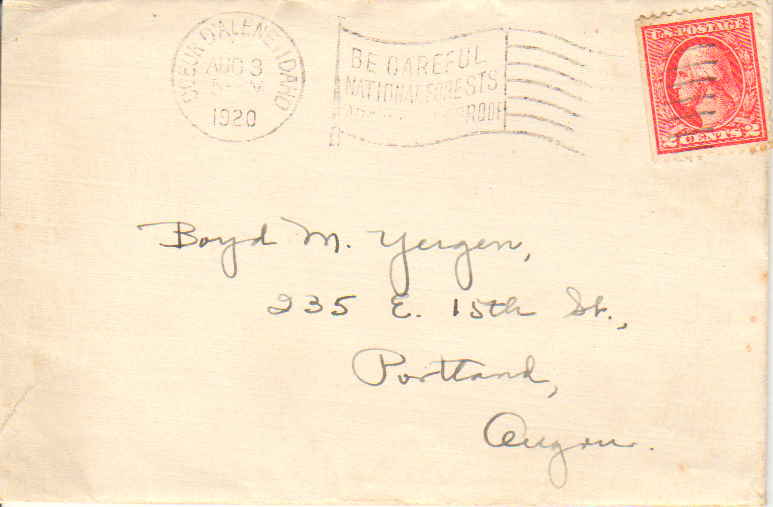 COEUR D'ALENE, IDAHO
AUG 3
1920
BE CAREFUL
NATIONAL FORESTS
ROOF
U.S. POSTAGE
2 CENTS 2
Boyd M. Yergen,
235 E. 15th St.,
Portland,
Oregon.